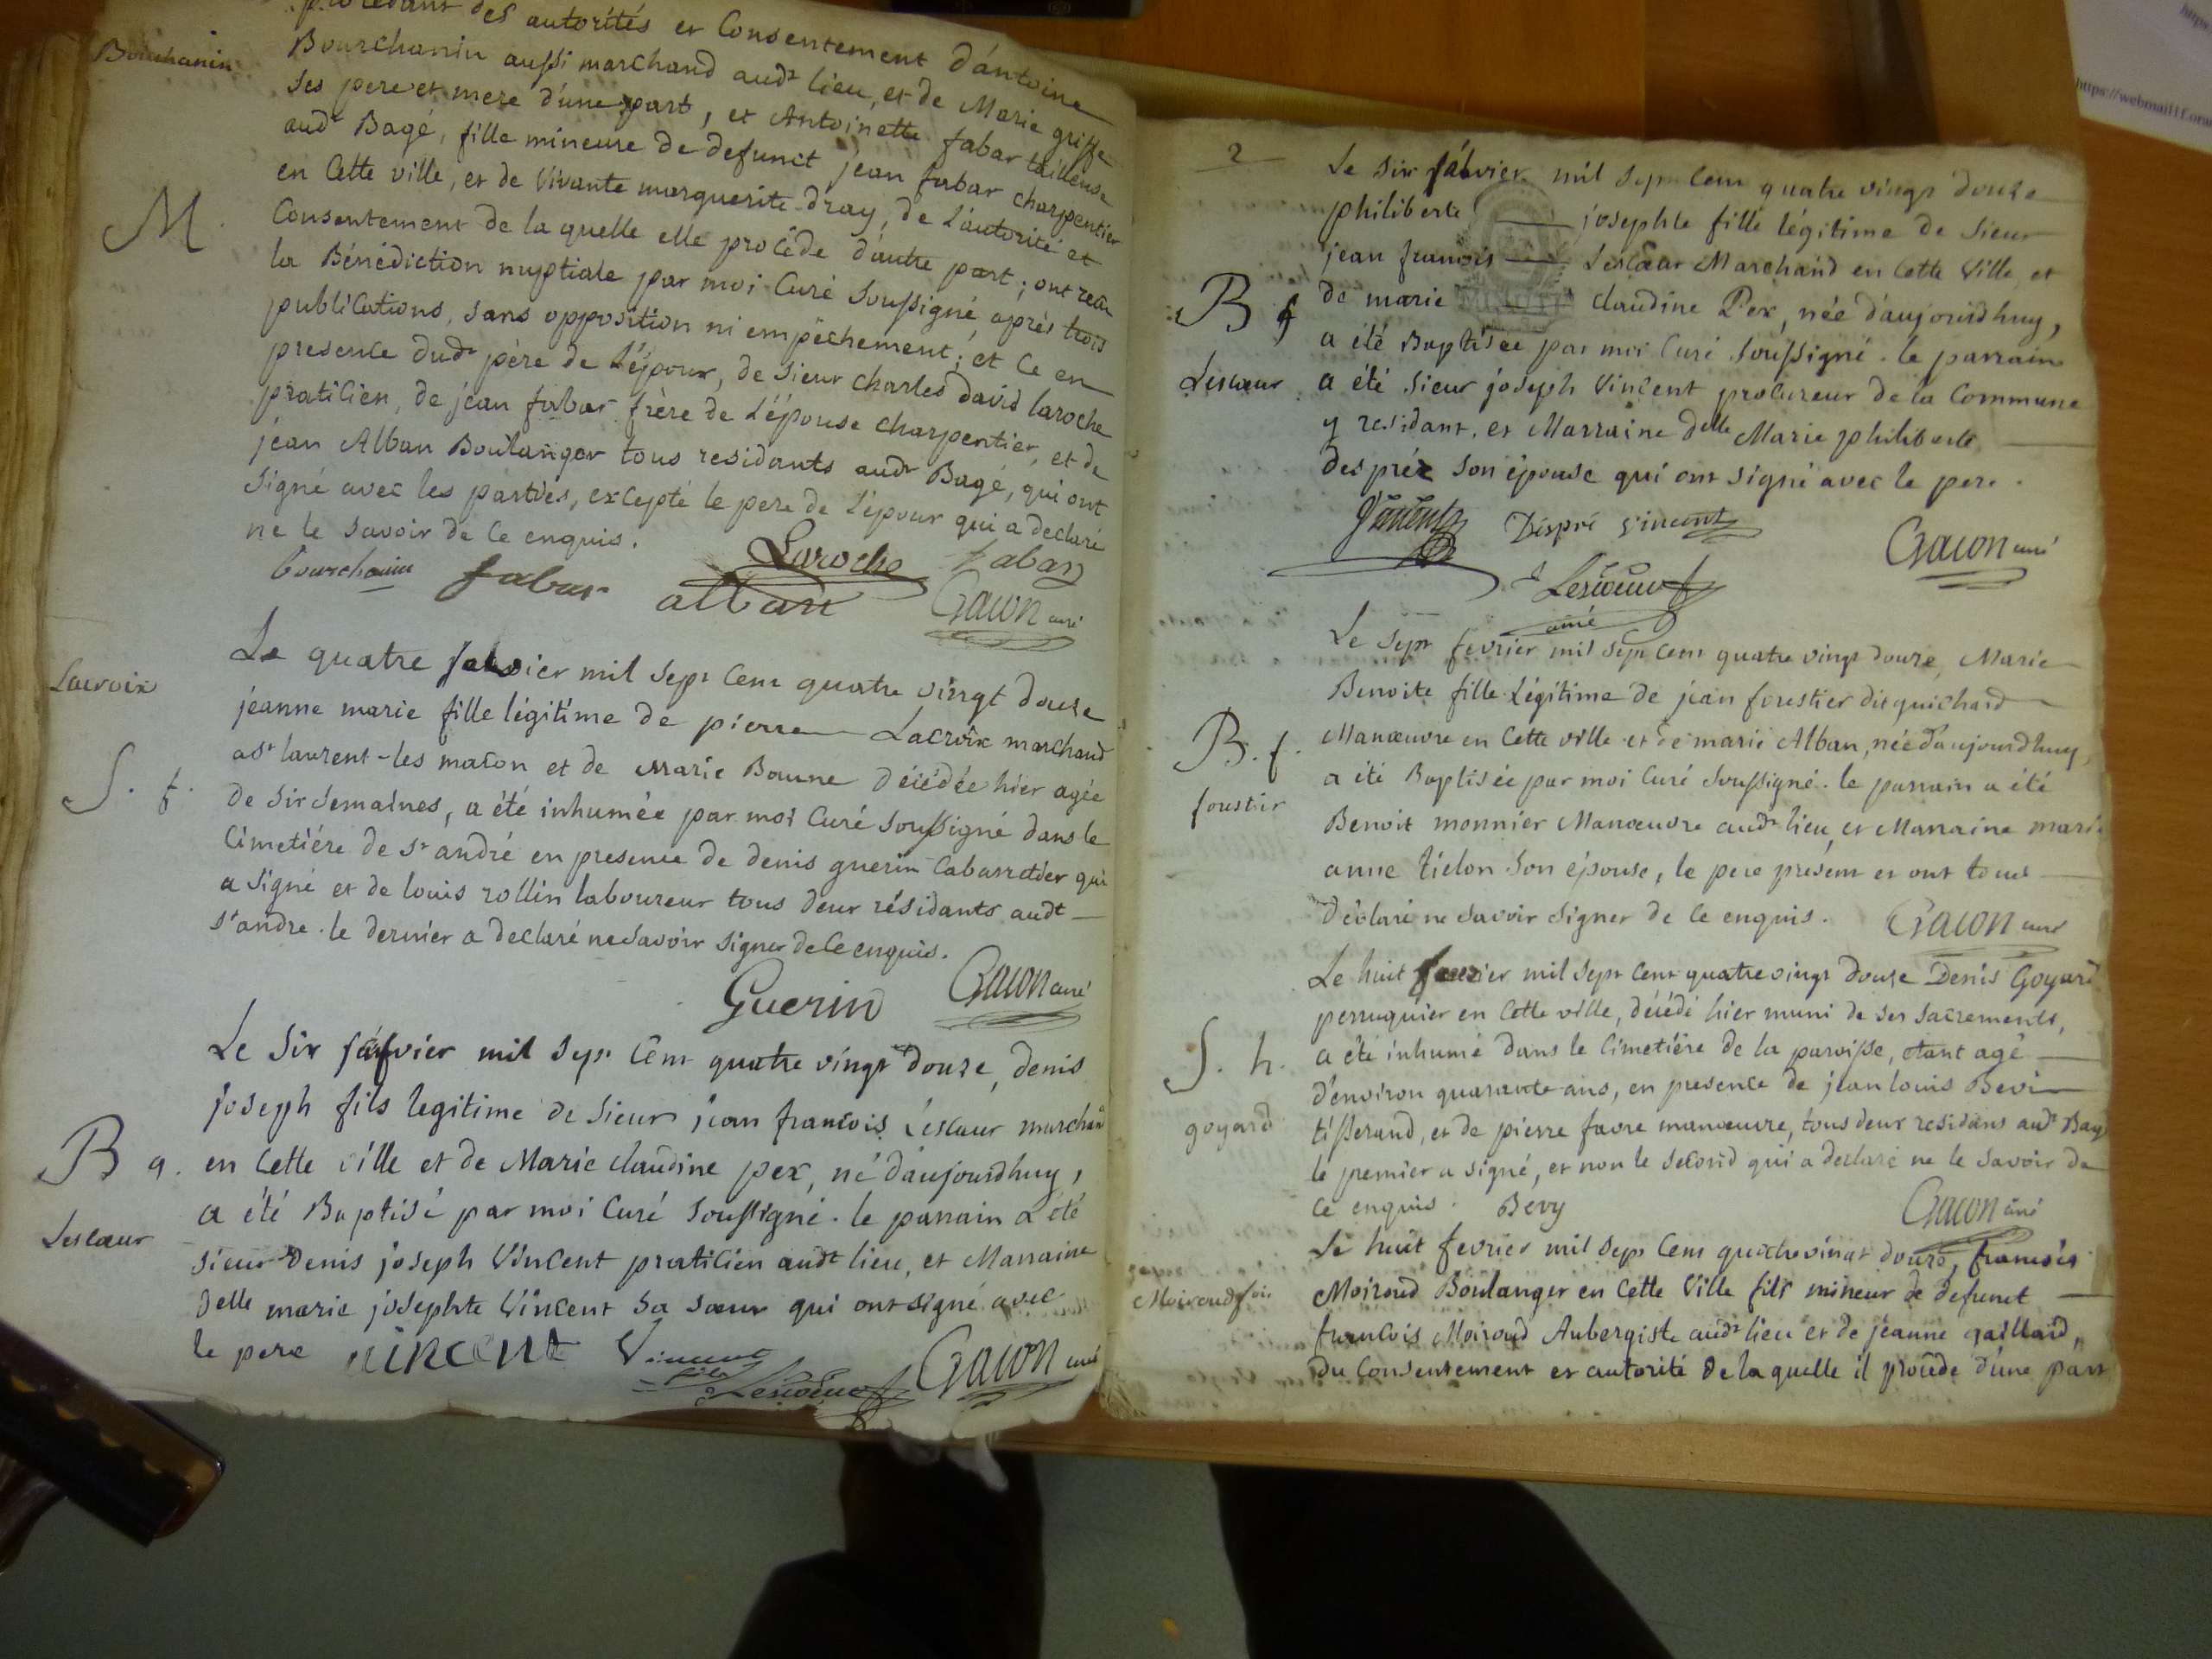 procedant des autorités et Consentement d'antoine
Bourchanin
Bourchanin aussi marchand audt lieu, et de Marie griffe
ses pere et mere d'une part, et Antoinette fabar tailleuse
audt Bagé, fille mineure de defunct jean fabar charpentier
en Cette ville, et de Vivante marguerite dray, de L'autorité et
M.
Consentement de la quelle elle procède d'autre part; ont recu
la Bénédiction nuptiale par moi Curé Soussigné, après trois
publications, sans opposition ni empêchement; et Ce en
presence dudt père de L'époux, de Sieur Charles david laroche
praticien, de jean fabar frère de L'épouse charpentier, et de
jean Alban Boulanger tous residants audt Bagé, qui ont
Signé avec les parties, excepté le pere de L'époux qui a declaré
ne le Savoir de Ce enquis.
bourchanin fabar Laroche fabar
alban Gacon curé
Lacroix
Le quatre fevrier mil Sept Cent quatre vingt douze
jeanne marie fille légitime de pierre Lacroix marchand
a St laurent-les macon et de Marie Boune décédée hier agée
S. f.
de Six Semaines, a été inhumée par moi Curé Soussigné dans le
Cimetiére de St andré en presence de denis guerin Cabarretier qui
a Signé et de louis rollin laboureur tous deux résidants audt
St andre. le dernier a declaré ne Savoir Signer de Ce enquis.
Guerin Gacon curé
Le Six fevrier mil Sept Cent quatre vingt douze, denis
joseph fils legitime de Sieur jean francois Lescœur marchand
B g.
en Cette ville et de Marie claudine pex, né d'aujourdhuy,
a été Baptisé par moi Curé Soussigné. le parrain a été
Lescœur
Sieur Denis joseph Vincent praticien audt lieu, et Marraine
delle marie josephte Vincent Sa sœur qui ont signé avec
le pere vincent Vincent fils Lescœur Gacon curé
2
Le Six fevrier mil Sept Cent quatre vingt douze
philiberte josephte fille légitime de Sieur
jean francois Lescœur Marchand en Cette Ville, et
B f
de marie claudine Pex, née d'aujourdhuy,
a été Baptisée par moi Curé Soussigné. le parrain
Lescœur
a été Sieur joseph Vincent procureur de la Commune
y residant, et Marraine delle Marie philiberte
despréz Son épouse qui ont Signé avec le pere.
Vincent Dépré vincent Gacon curé
Lescœur
ainé
Le Sept fevrier mil Sept Cent quatre vingt douze, Marie
Benoite fille Légitime de jean forestier dit guichard
B. f.
Manœuvre en Cette ville et de marie Alban, née d'aujourdhuy,
a été Baptisée par moi Curé Soussigné. le parrain a été
forestier
Benoit monnier Manœuvre audt lieu, et Marraine marie
anne Tielon Son épouse, le pere present et ont tous
déclaré ne Savoir Signer de Ce enquis. Gacon curé
Le huit fevrier mil Sept Cent quatre vingt douze Denis Goyard
perruquier en Cette ville, décédé hier muni de Ses Sacrements,
S. h.
a été inhumé dans le Cimetiére de la paroisse, etant agé
d'environ quarante ans, en presence de jean louis Bevi
goyard
tisserand, et de pierre favre manœuvre, tous deux residans audt Bagé
le premier a signé, et non le Second qui a declaré ne le Savoir de
Ce enquis. Bevy Gacon curé
Le huit fevrier mil Sept Cent quatre vingt douze, francois
Moiroud
Moiroud Boulanger en Cette Ville fils mineur de defunct
francois Moiroud Aubergiste audt lieu et de jeanne gaillard,
du Consentement et autorité de la quelle il procède d'une part
https://webmail1f.oran